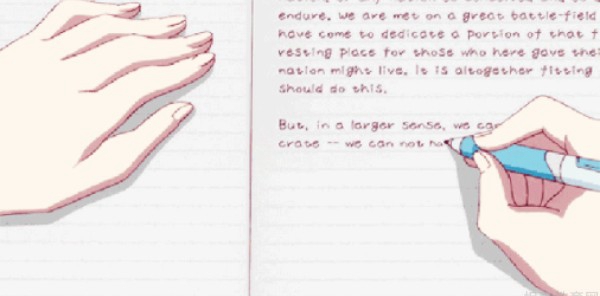 endure. We are met on a great battle-field
have come to dedicate a portion of that f
resting place for those who here gave thei
nation might live. It is altogether fitting
should do this.
But, in a larger sense, we can
crate -- we can not ha